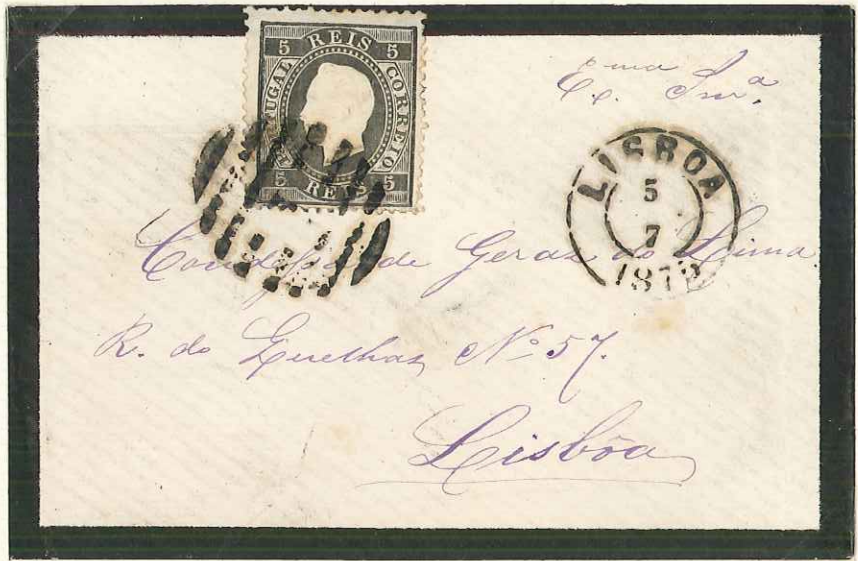 5 REIS 5
PORTUGAL CORREIO
5 REIS 5
Ex.ma Snr.a
LISBOA
5
7
Condessa de Geraz do Lima
R. do Quelhas Nº 57.
Lisbôa